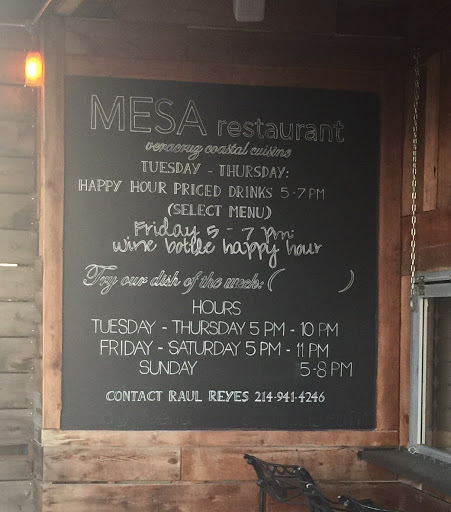 MESA restaurant
veracruz coastal cuisine
TUESDAY - THURSDAY:
HAPPY HOUR PRICED DRINKS 5-7 PM
(SELECT MENU)
Friday 5 - 7 pm:
wine bottle happy hour
Try our dish of the week: ( )
HOURS
TUESDAY - THURSDAY 5 PM - 10 PM
FRIDAY - SATURDAY 5 PM - 11 PM
SUNDAY 5-8 PM
CONTACT RAUL REYES 214-941-4246